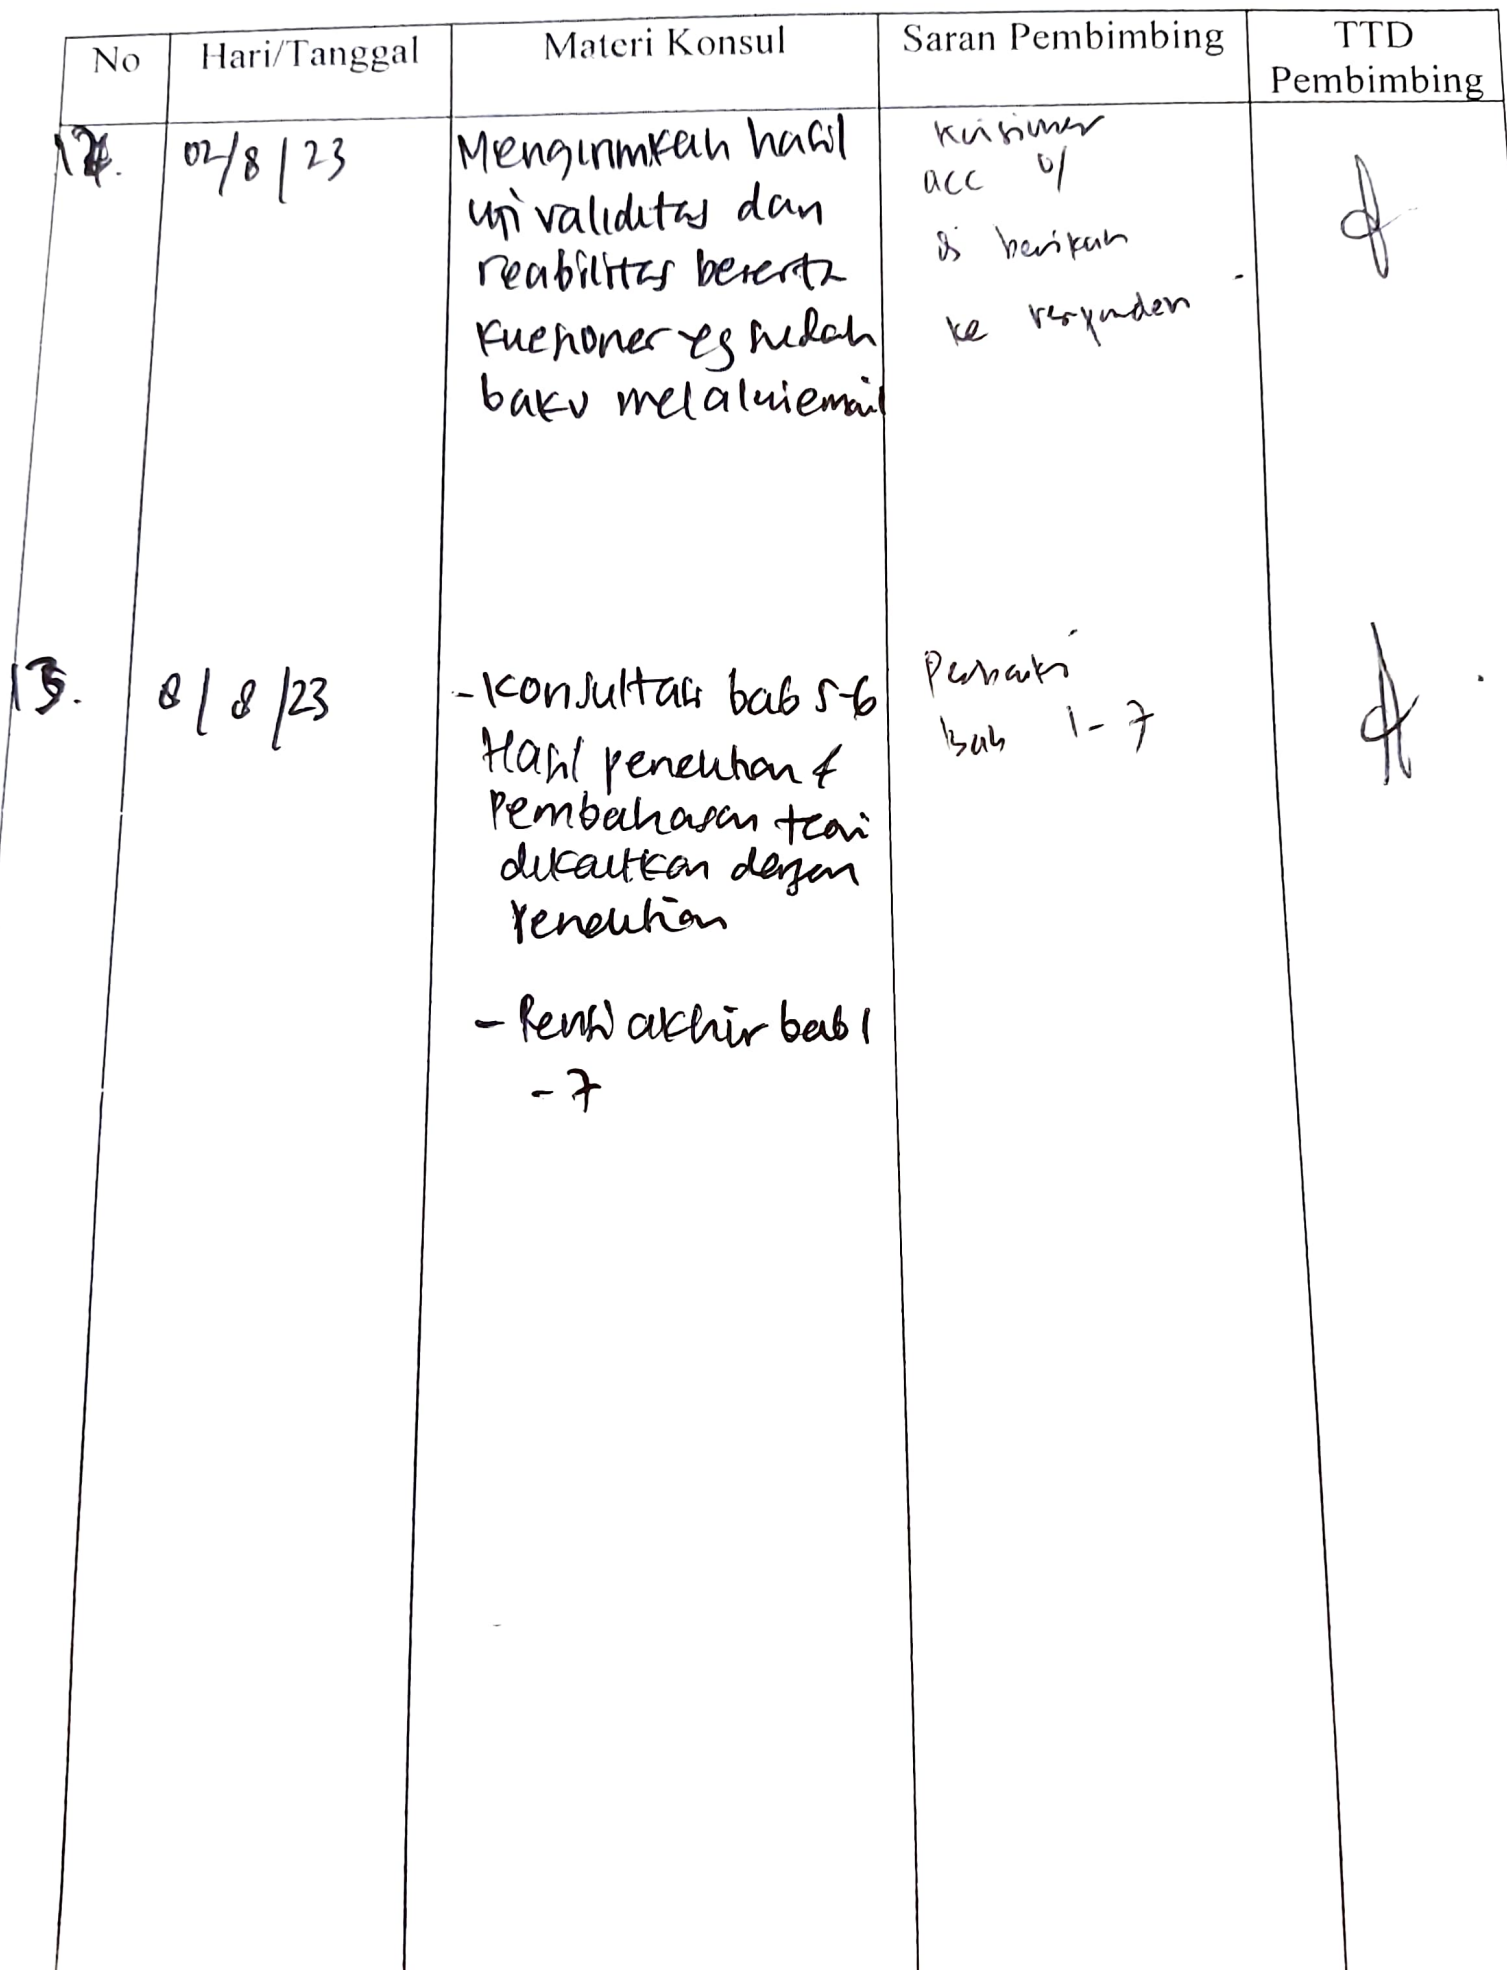 No Hari/Tanggal Materi Konsul Saran Pembimbing TTD Pembimbing
02/8/23
Mengirimkan hasil
uji validitas dan
reabilitas beserta
kuesioner yg sudah
baku melalui email
Kuisioner
acc u/
di berikan
ke responden
8/8/23
- Konsultasi bab 5-6
Hasil penelitian &
Pembahasan teori
dikaitkan dengan
Penelitian
- Revisi akhir bab 1
- 7
Perbaiki
Bab 1-7